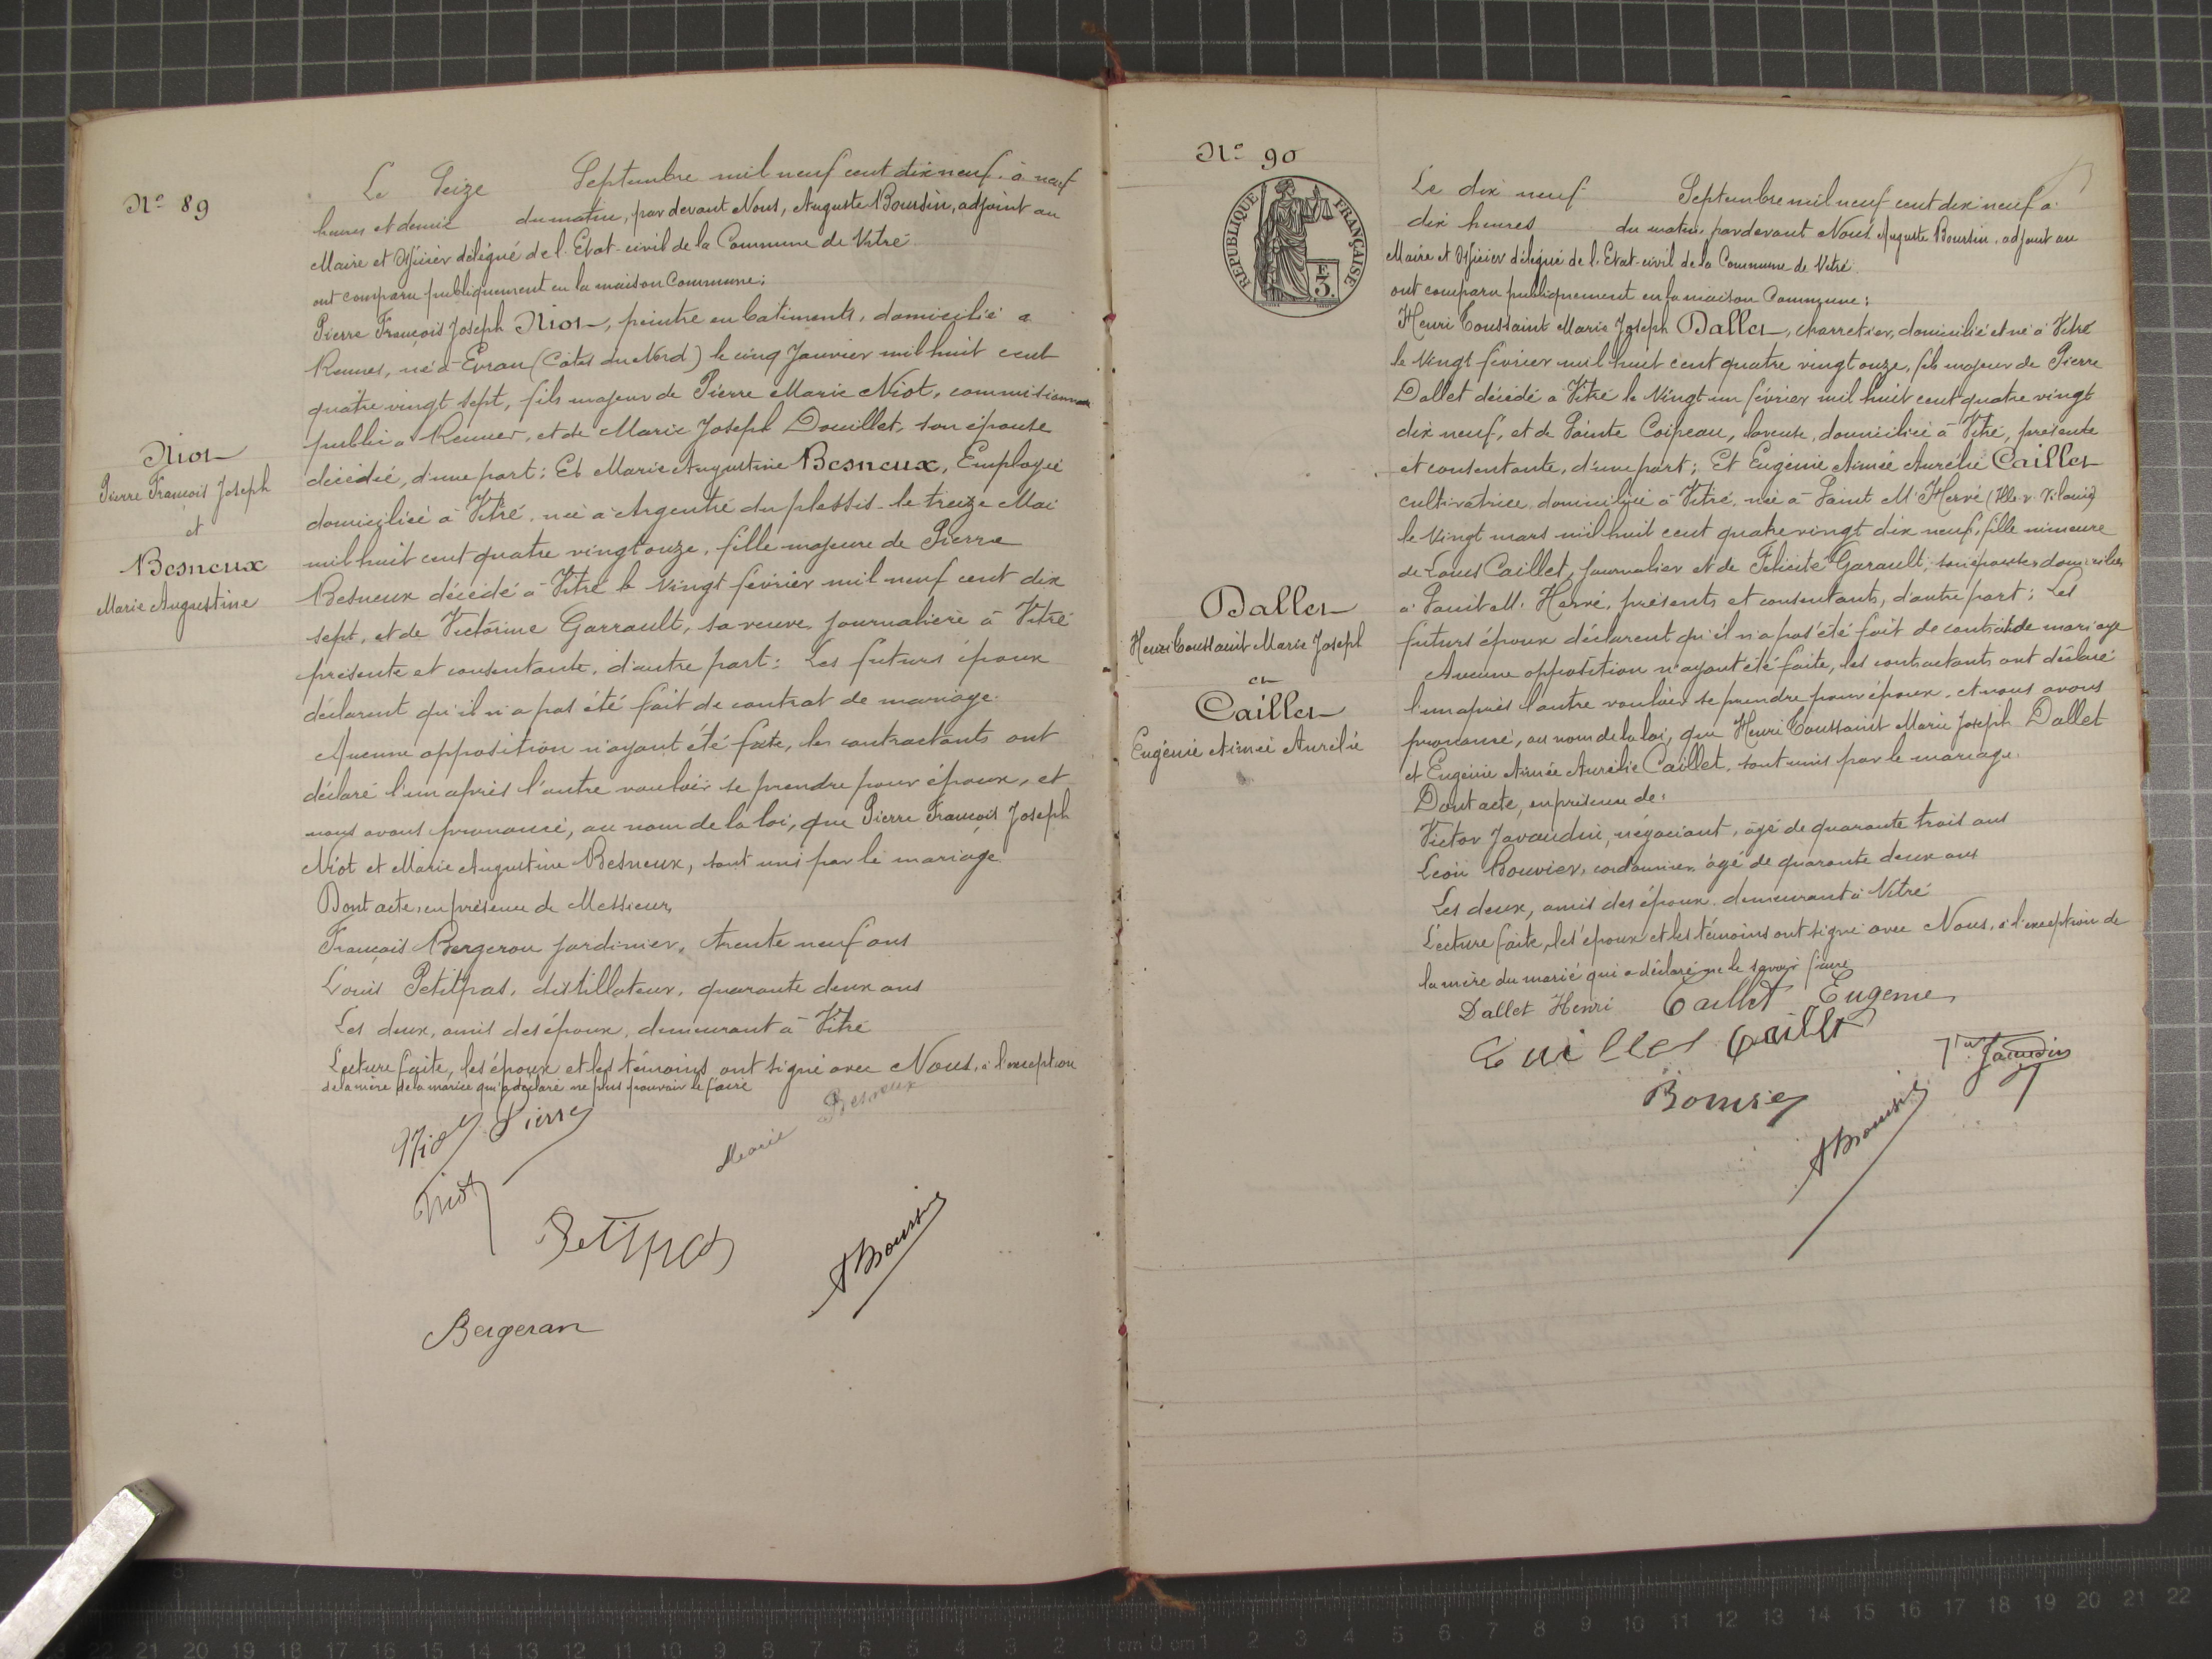 Nº 89
Le Seize Septembre mil neuf cent dix neuf. à neuf
heures et demie du matin, par devant Nous, Auguste Boursin, adjoint au
Maire et Officier délégué de l'Etat-civil de la Commune de Vitré.
ont comparu publiquement en la maison Commune:
Pierre François Joseph Niot, peintre en batiments, domicilié à
Rennes, né à Evran (Côtes du Nord) le cinq Janvier mil huit cent
quatre vingt sept, fils majeur de Pierre Marie Niot, commissionnaire
public à Rennes, et de Marie Joseph Douillet, son épouse
décédée, d'une part; Et Marie Augustine Besneux, Employée
domiciliée à Vitré, née à Argentré du plessis le treize Mai
mil huit cent quatre vingt onze, fille majeure de Pierre
Besneux décédé à Vitré le Vingt février mil neuf cent dix
sept, et de Victorine Garrault, sa veuve, journalière à Vitré
présente et consentante, d'autre part: Les futurs époux
déclarent qu'il n'a pas été fait de contrat de mariage.
Aucune opposition n'ayant été faite, les contractants ont
déclaré l'un après l'autre vouloir se prendre pour époux, et
nous avons prononcé, au nom de la loi, que Pierre François Joseph
Niot et Marie Augustine Besneux, sont unis par le mariage.
Dont acte, en présence de Messieurs
François Bergerou jardinier, trente neuf ans
Louis Petitpas, distillateur, quarante deux ans
Les deux, amis des époux, demeurant à Vitré
Lecture faite, les époux et les témoins ont signé avec Nous, à l'exception
de la mère de la mariée qui a déclaré ne plus pouvoir le faire
Niot
Pierre François Joseph
et
Besneux
Marie Augustine
Niot Pierre
Marie Besneux
Niot
Petitpas
ABoursin
Bergeran
Nº 90
RÉPUBLIQUE FRANÇAISE
3
Le dix neuf Septembre mil neuf cent dix neuf à
dix heures du matin par devant Nous Auguste Boursin, adjoint au
Maire et Officier délégué de l'Etat-civil de la Commune de Vitré.
ont comparu publiquement en la maison Commune:
Henri Toussaint Marie Joseph Dallet, charretier, domicilié et né à Vitré
le Vingt février mil huit cent quatre vingt onze, fils majeur de Pierre
Dallet décédé à Vitré le Vingt un février mil huit cent quatre vingt
dix neuf, et de Sainte Coipeau, laveuse, domiciliée à Vitré, présente
et consentante, d'une part; Et Eugénie Aimée Aurélie Caillet
cultivatrice, domiciliée à Vitré, née à Saint M'Hervé (Ille-v-Vilaine)
le Vingt mars mil huit cent quatre vingt dix neuf, fille mineure
de Louis Caillet, journalier et de Félicité Garault, son épouse, domiciliés
à Saint M'Hervé, présents et consentants, d'autre part: Les
futurs époux déclarent qu'il n'a pas été fait de contrat de mariage
Aucune opposition n'ayant été faite, les contractants ont déclaré
l'un après l'autre vouloir se prendre pour époux, et nous avons
prononcé, au nom de la loi, que Henri Toussaint Marie Joseph Dallet
et Eugénie Aimée Aurélie Caillet, sont unis par le mariage.
Dont acte, en présence de:
Victor Javaudin, négociant, âgé de quarante trois ans
Léon Bouvier, cordonnier, âgé de quarante deux ans
Les deux, amis des époux, demeurant à Vitré
Lecture faite, les époux et les témoins ont signé avec Nous, à l'exception de
la mère du marié qui a déclaré ne le savoir faire
Dallet
Henri Toussaint Marie Joseph
et
Caillet
Eugénie Aimée Aurélie
Dallet Henri Caillet Eugenie
Caillet
Javaudin
Bouvier
ABoursin
21 20 19 18 17 16 15 14 13 12 11 10 9 8 7 6 5 4 3 2 1 cm 0 cm 1 2 3 4 5 6 7 8 9 10 11 12 13 14 15 16 17 18 19 20 21 22